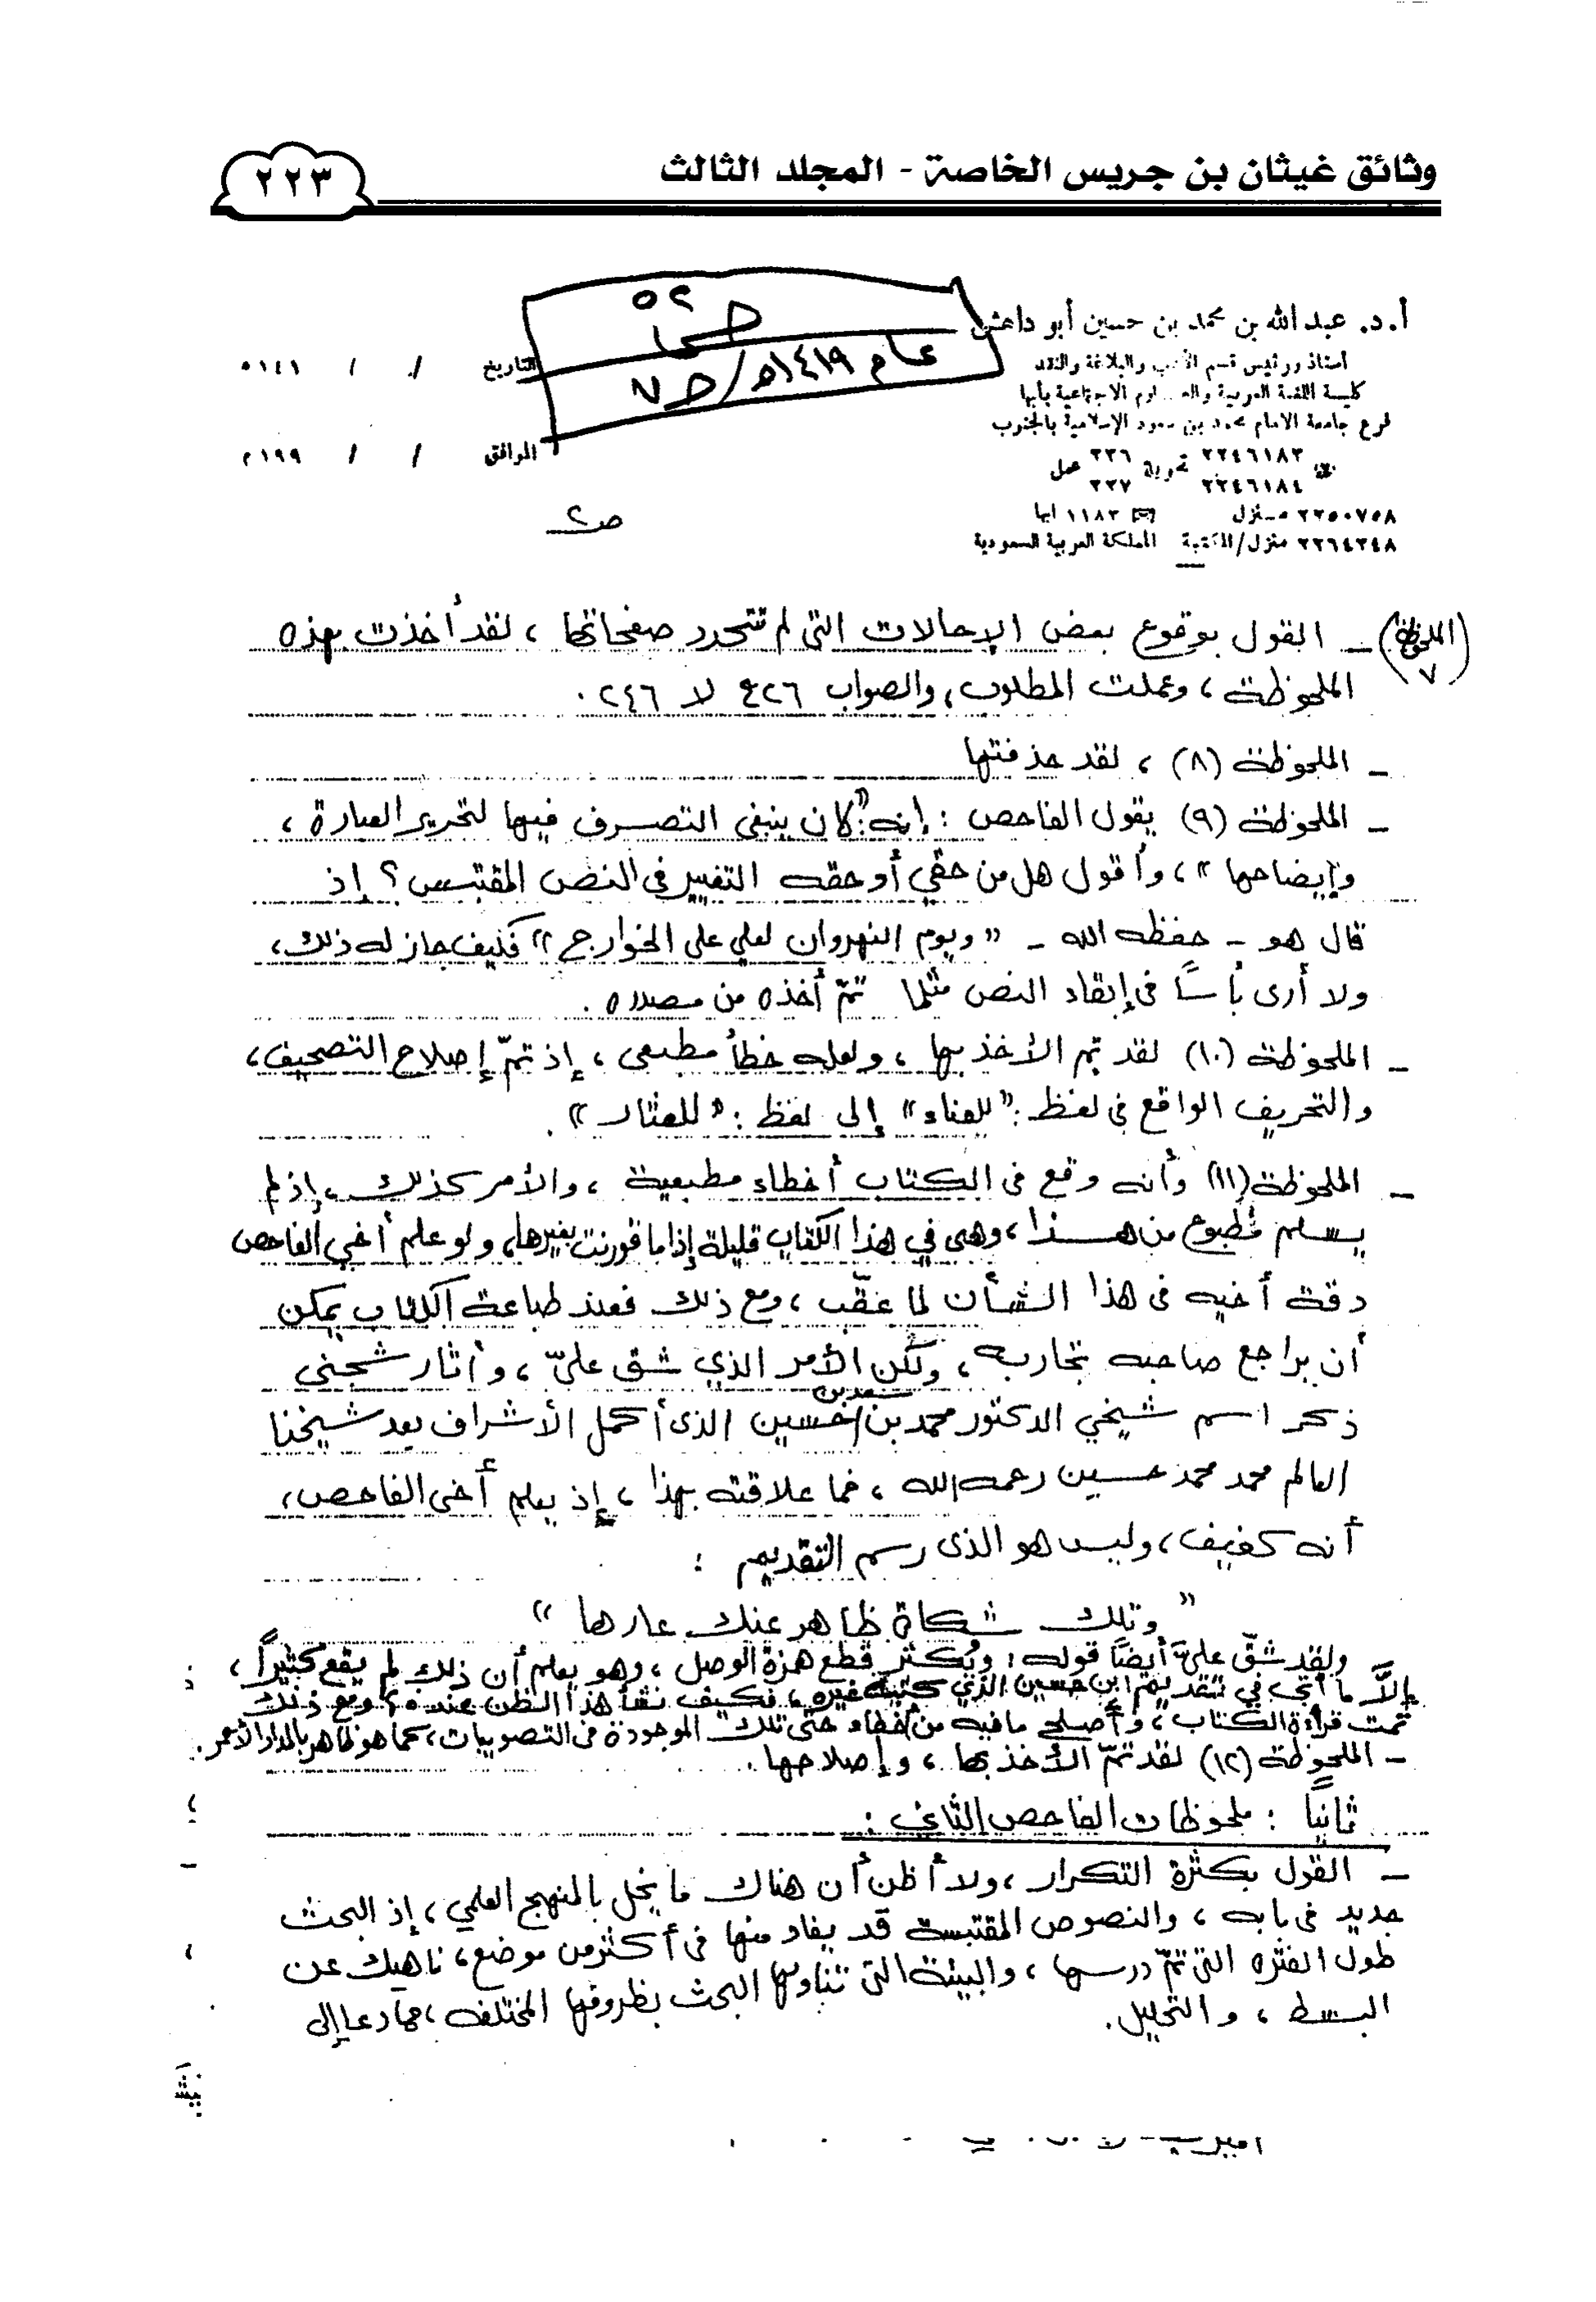 وثائق غيثان بن جريس الخاصة - المجلد الثالث
٢٢٣
أ.د. عبدالله بن محمد بن حسين أبو داهش
أستاذ ورئيس قسم الأدب والبلاغة والنقد
كلية اللغة العربية والعلوم الاجتماعية بأبها
فرع جامعة الامام محمد بن سعود الإسلامية بالجنوب
٢٢٤٦١٨٣ تحويلة ٢٣٦ عمل
٢٢٤٦١٨٤ ٢٣٧
٢٢٥٠٧٥٨ منزل ١١٨٣ ابها
٢٢٦٤٢٤٨ منزل/المكتبة المملكة العربية السعودية
٥٢
عام ١٤١٩هـ/ح٧
التاريخ / / ١٤١ ه
الموافق / / ١٩٩ م
ص٢
(الملحوظة ٧) - القول بوقوع بعض الإحالات التي لم تتحدد صفحاتها، لقد أخذت بهذه
الملحوظة، وعملت المطلوب، والصواب ٤٢٦ لا ٢٤٦.
- الملحوظة (٨)، لقد حذفتها
- الملحوظة (٩) يقول الفاحص: إنه: "كان ينبغي التصرف فيها لتحرير العبارة،
وإيضاحها"، وأقول هل من حقي أو حقه التغيير في النص المقتبس؟ إذ
قال هو - حفظه الله - "ويوم النهروان لعلي على الخوارج" فكيف جاز له ذلك،
ولا أرى بأسًا في إبقاء النص مثلما تمّ أخذه من مصدره.
- الملحوظة (١٠) لقد تم الأخذ بها، ولعله خطأ مطبعي، إذ تمّ إصلاح التصحيف،
والتحريف الواقع في لفظ: "للعناء" إلى لفظ: "للعثار".
- الملحوظة (١١) وأنه وقع في الكتاب أخطاء مطبعية، والأمر كذلك، إذ لم
يسلم مطبوع من هذا، وهي في هذا الكتاب قليلة إذا ما قورنت بغيرها، ولو علم أخي الفاحص
دقة أخيه في هذا الشأن لما عقّب، ومع ذلك فعند طباعة الكتاب يمكن
أن يراجع صاحبه تجاربه، ولكن الأمر الذي شق عليّ، وأثار شجني
ذكر اسم شيخي الدكتور محمد بن سعد بن حسين الذي أكمل الأشراف بعد شيخنا
العالم محمد محمد حسين رحمه الله، فما علاقته بهذا، إذ يعلم أخي الفاحص،
أنه كفيف، وليس هو الذي رسم التقديم:
"وتلك شكاة ظاهر عنك عارها"
ولقد شقّ عليّ أيضًا قوله: ويكثر قطع همزة الوصل، وهو يعلم أن ذلك لم يقع كثيرًا،
إلاّ ما أتى في تقديم ابن حسين الذي كتبه غيره، فكيف نشأ هذا الظن عنده؟ ومع ذلك
تمت قراءة الكتاب، وأصلح ما فيه من أخطاء حتى تلك الموجودة في التصويبات، كما هو ظاهر بالمداد الأحمر.
- الملحوظة (١٢) لقد تمّ الأخذ بها، وإصلاحها.
ثانيًا: ملحوظات الفاحص الثاني:
- القول بكثرة التكرار، ولا أظن أن هناك ما يخل بالمنهج العلمي، إذ البحث
جديد في بابه، والنصوص المقتبسة قد يفاد منها في أكثر من موضع، ناهيك عن
طول الفترة التي تمّ درسها، والبيئة التي تناولها البحث بظروفها المختلفة، مما دعا إلى
البسط، والتحليل.